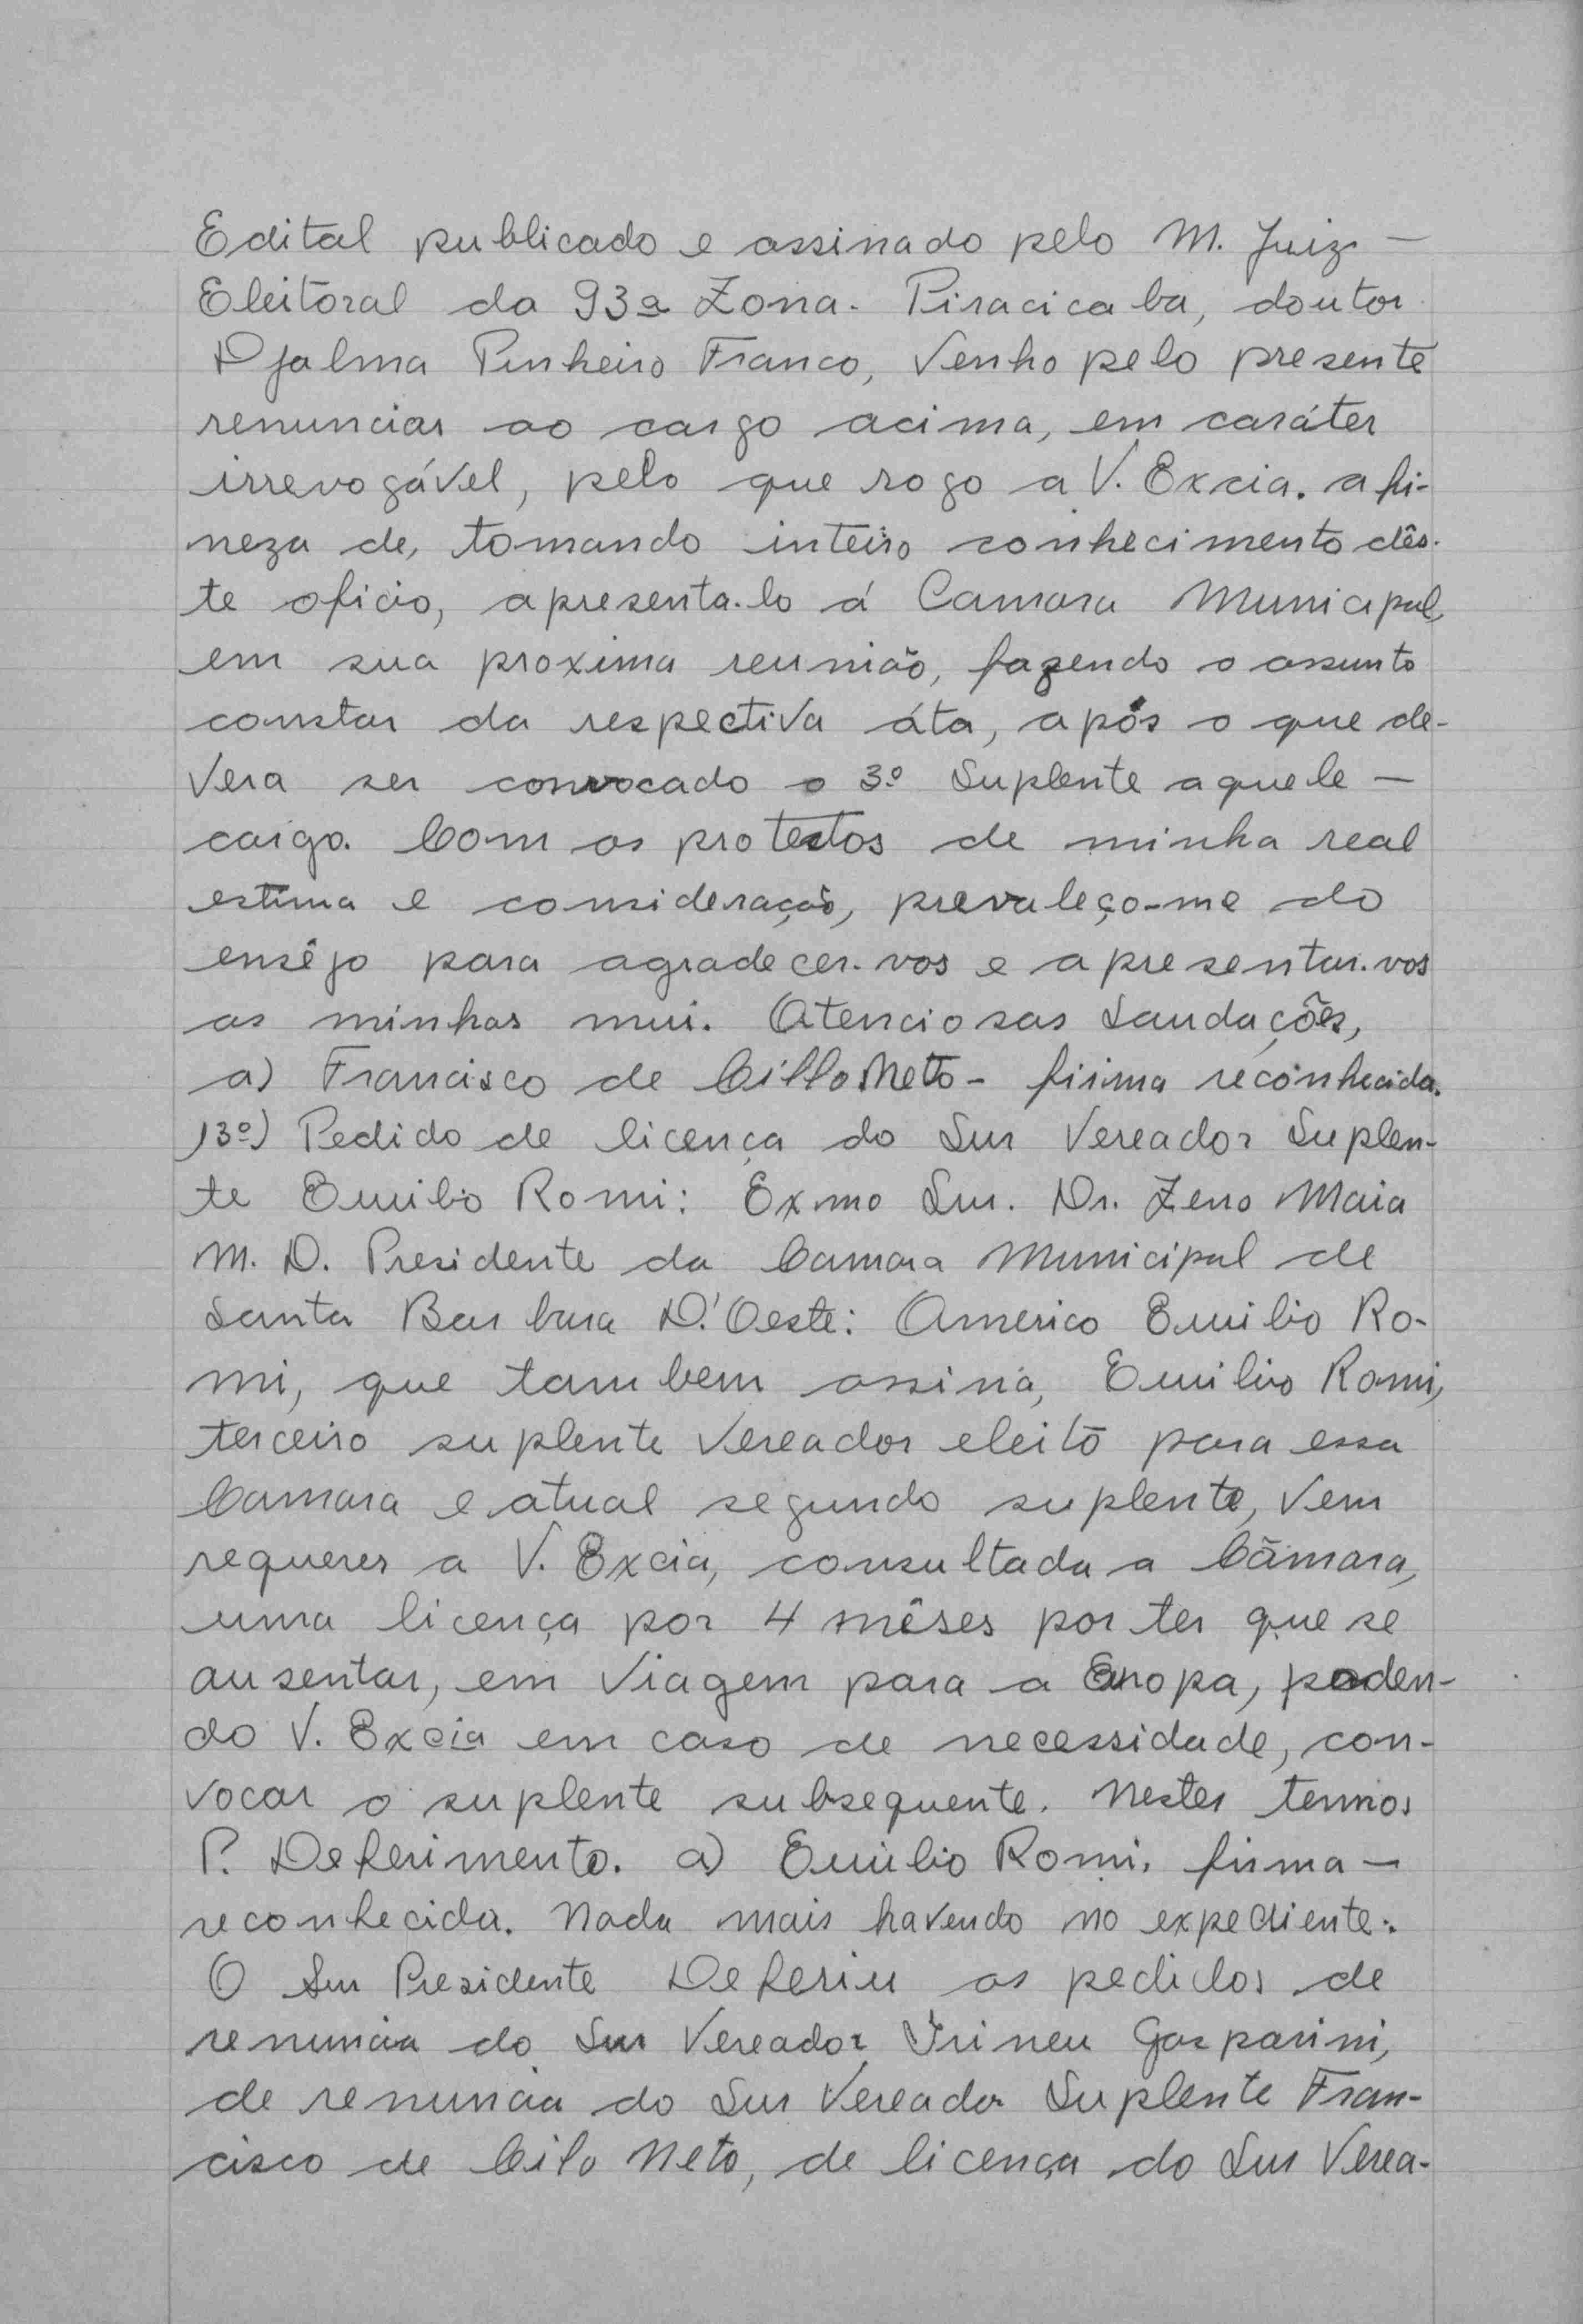 Edital publicado e assinado pelo M. Juiz -
Eleitoral da 93a Zona. Piracicaba, doutor
Djalma Pinheiro Franco, Venho pelo presente
renunciar ao cargo acima, em caráter
irrevogável, pelo que rogo a V. Excia. a fi-
neza de, tomando inteiro conhecimento dês-
te oficio, apresenta-lo á Camara Municipal,
em sua proxima reunião, fazendo o assunto
constar da respectiva áta, após o que de-
Vera ser convocado o 3º Suplente aquele -
cargo. Com os protestos de minha real
estima e consideração, prevaleço-me do
ensêjo para agradecer-vos e apresentar-vos
as minhas mui. Atenciosas Saudações,
a) Francisco de Cillo Neto - firma reconhecida.
13º) Pedido de licença do Snr Vereador Suplen-
te Emilio Romi: Exmo Snr. Dr. Zeno Maia
M. D. Presidente da Camara Municipal de
Santa Barbara D'Oeste: Americo Emilio Ro-
mi, que tambem assina, Emilio Romi,
terceiro suplente Vereador eleito para essa
Camara e atual segundo suplente, Vem
requerer a V. Excia, consultada a Câmara,
uma licença por 4 mêses por ter que se
ausentar, em Viagem para a Europa, poden-
do V. Excia em caso de necessidade, con-
vocar o suplente subsequente. Nestes termos
P. Deferimento. a) Emilio Romi. firma -
reconhecida. Nada mais havendo no expediente.
O Snr Presidente Deferiu os pedidos de
renuncia do Snr Vereador Irineu Gasparini,
de renuncia do Snr Vereador Suplente Fran-
cisco de Cilo Neto, de licença do Snr Verea-